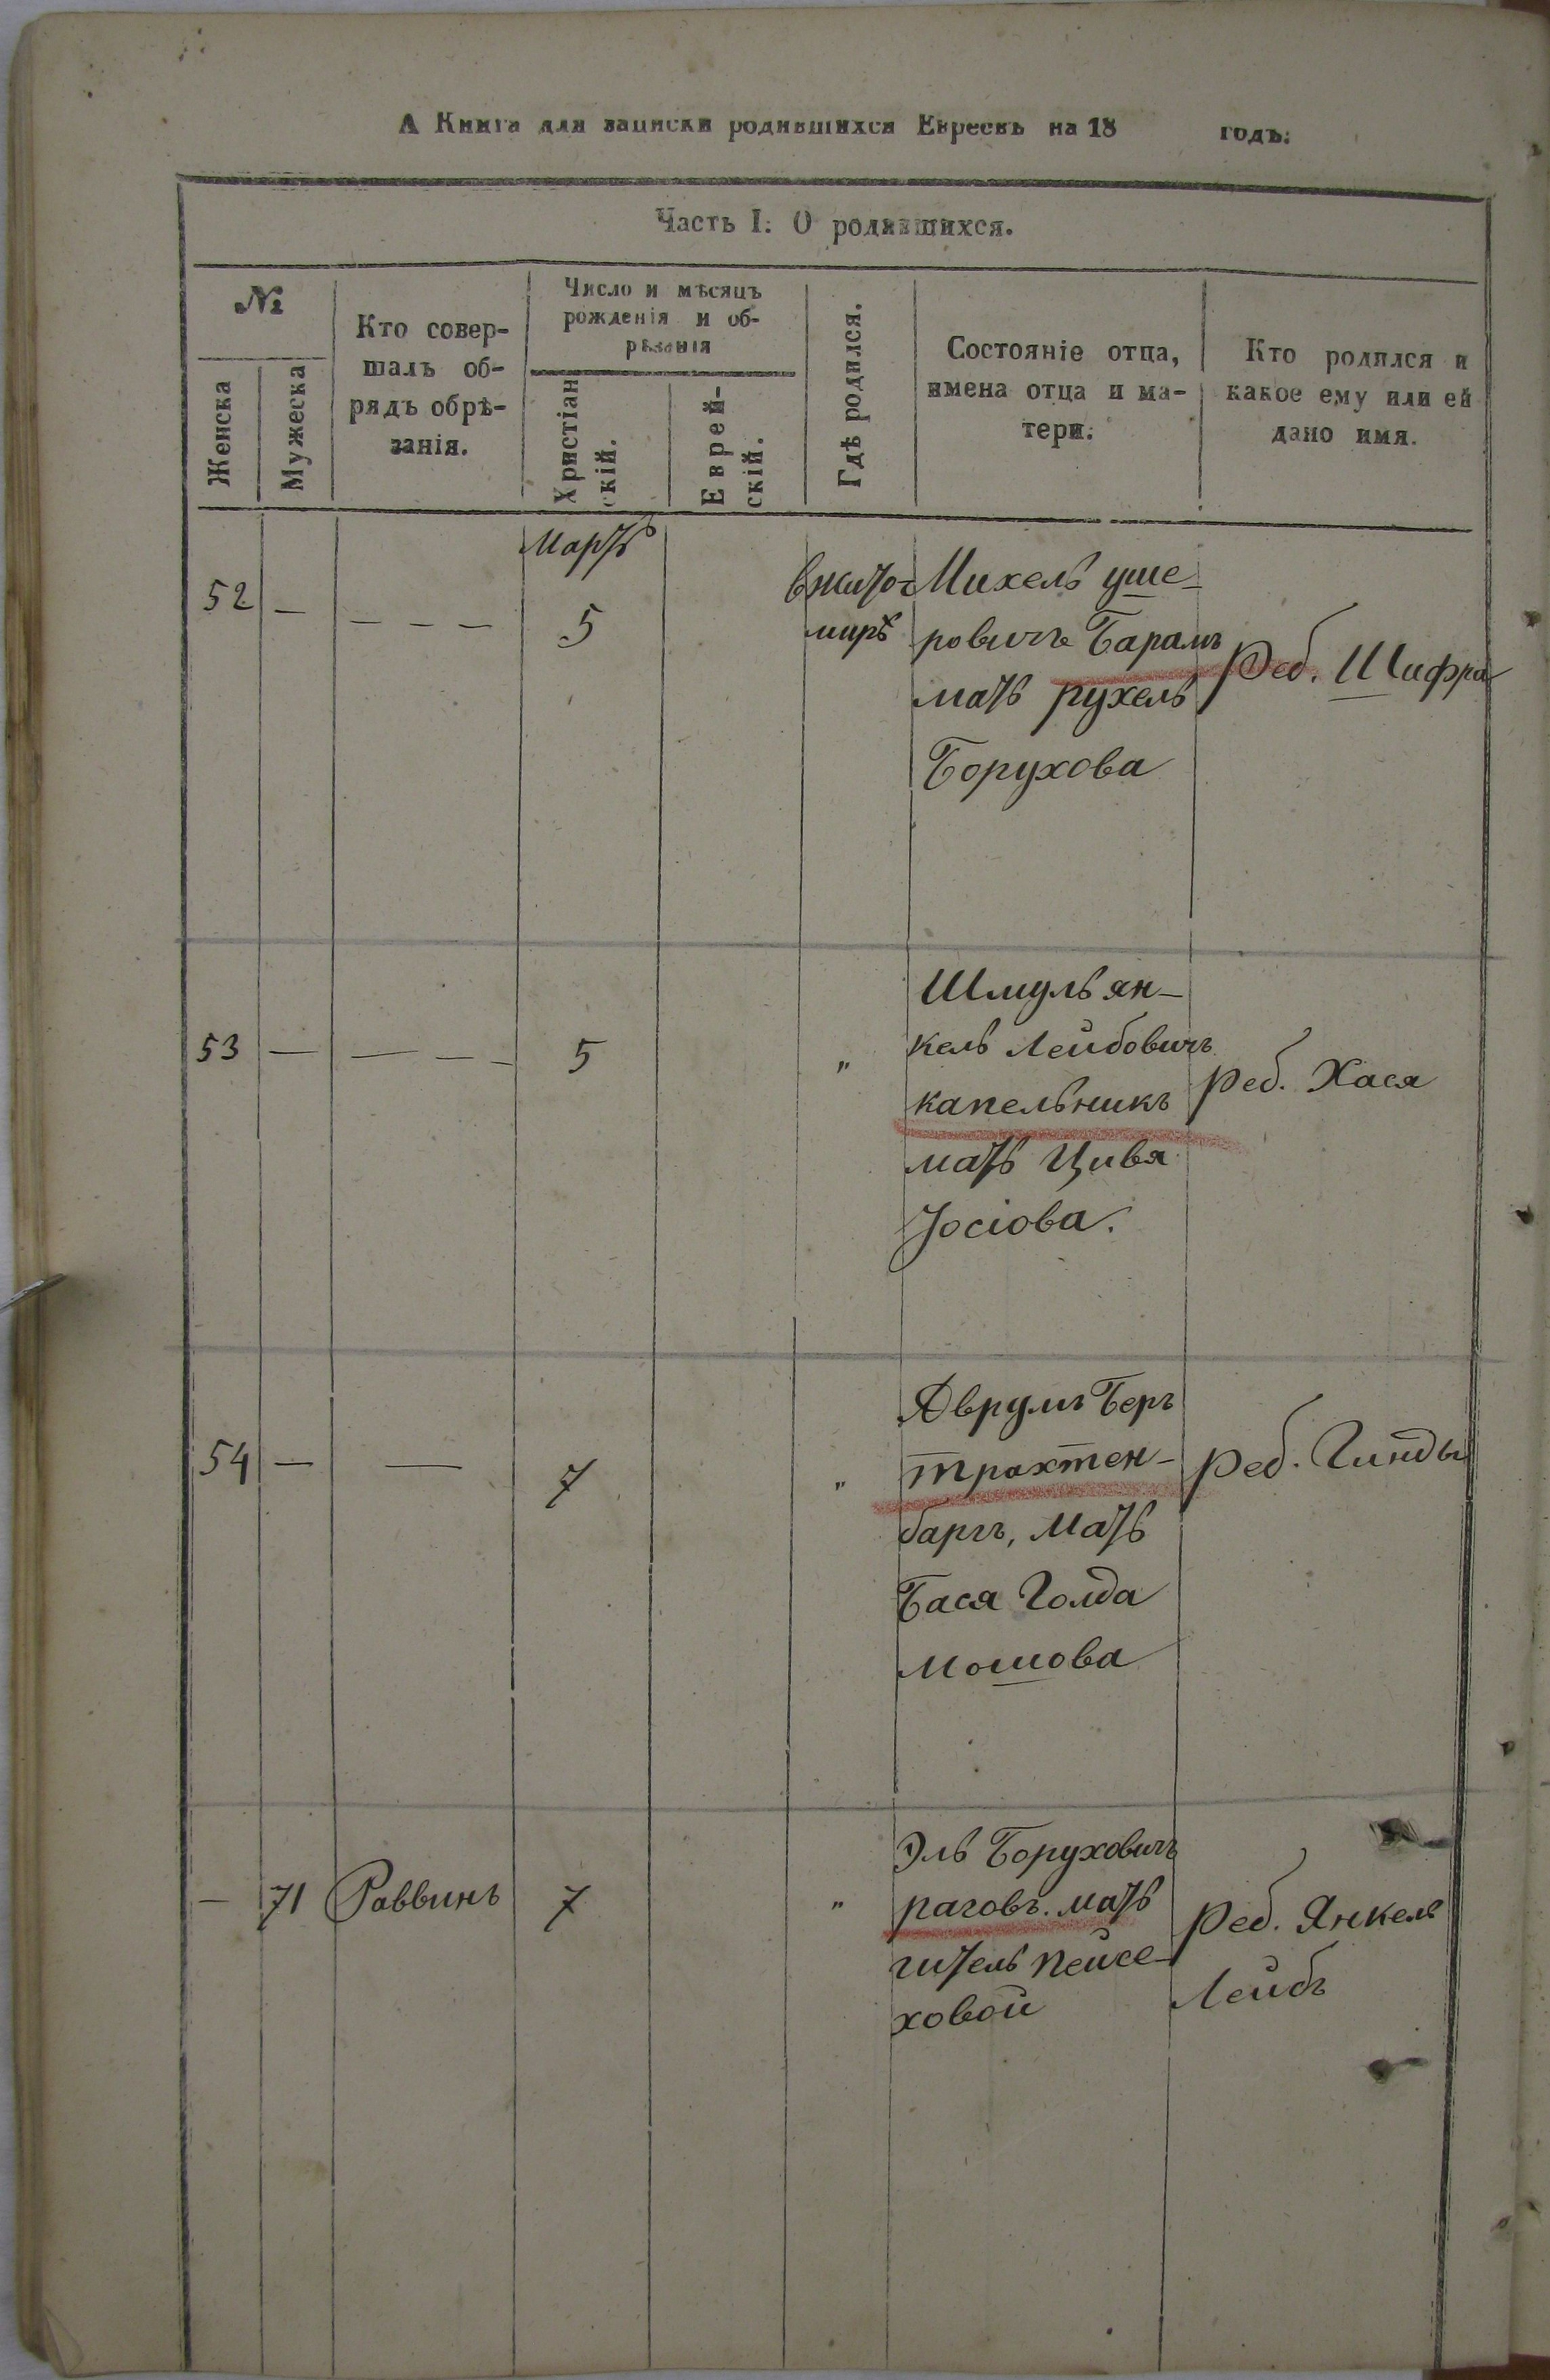 А Книга для записки родившихся Евреевъ на 18 годъ.
Часть I. О родившихся.
№
Женска
Мужеска
Кто совер-
шалъ об-
рядъ обрѣ-
занія.
Число и мѣсяцъ
рожденія и об-
рѣзанія
Христіан
скій.
Еврей-
скій.
Гдѣ родился.
Состояніе отца,
имена отца и ма-
тери.
Кто родился и
какое ему или ей
дано имя.
Мартъ
52 — — — — 5
в жито-
мирѣ
Михель уше-
ровичъ Барамъ
мать рухель
Борухова
Реб. Шифра
53 — — — — 5 "
Шмуль ян-
кель Лейбовичъ
капельникъ
мать Цивя
Іосіова.
реб. Хася
54 — — 7 "
Аврумъ Беръ
трахтен-
баргъ, мать
Бася Голда
мошова
реб. Гинды
— 71 Раввинъ 7 "
Эль Боруховичъ
раговъ. мать
гитель пейсе-
ховой
реб. Янкель
Лейбъ